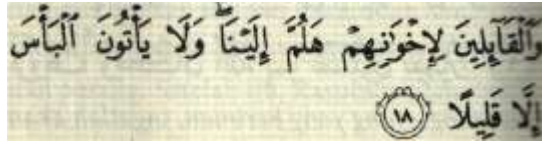 وَٱلْقَآئِلِينَ لِإِخْوَٰنِهِمْ هَلُمَّ إِلَيْنَا ۖ وَلَا يَأْتُونَ ٱلْبَأْسَ
إِلَّا قَلِيلًا ١٨